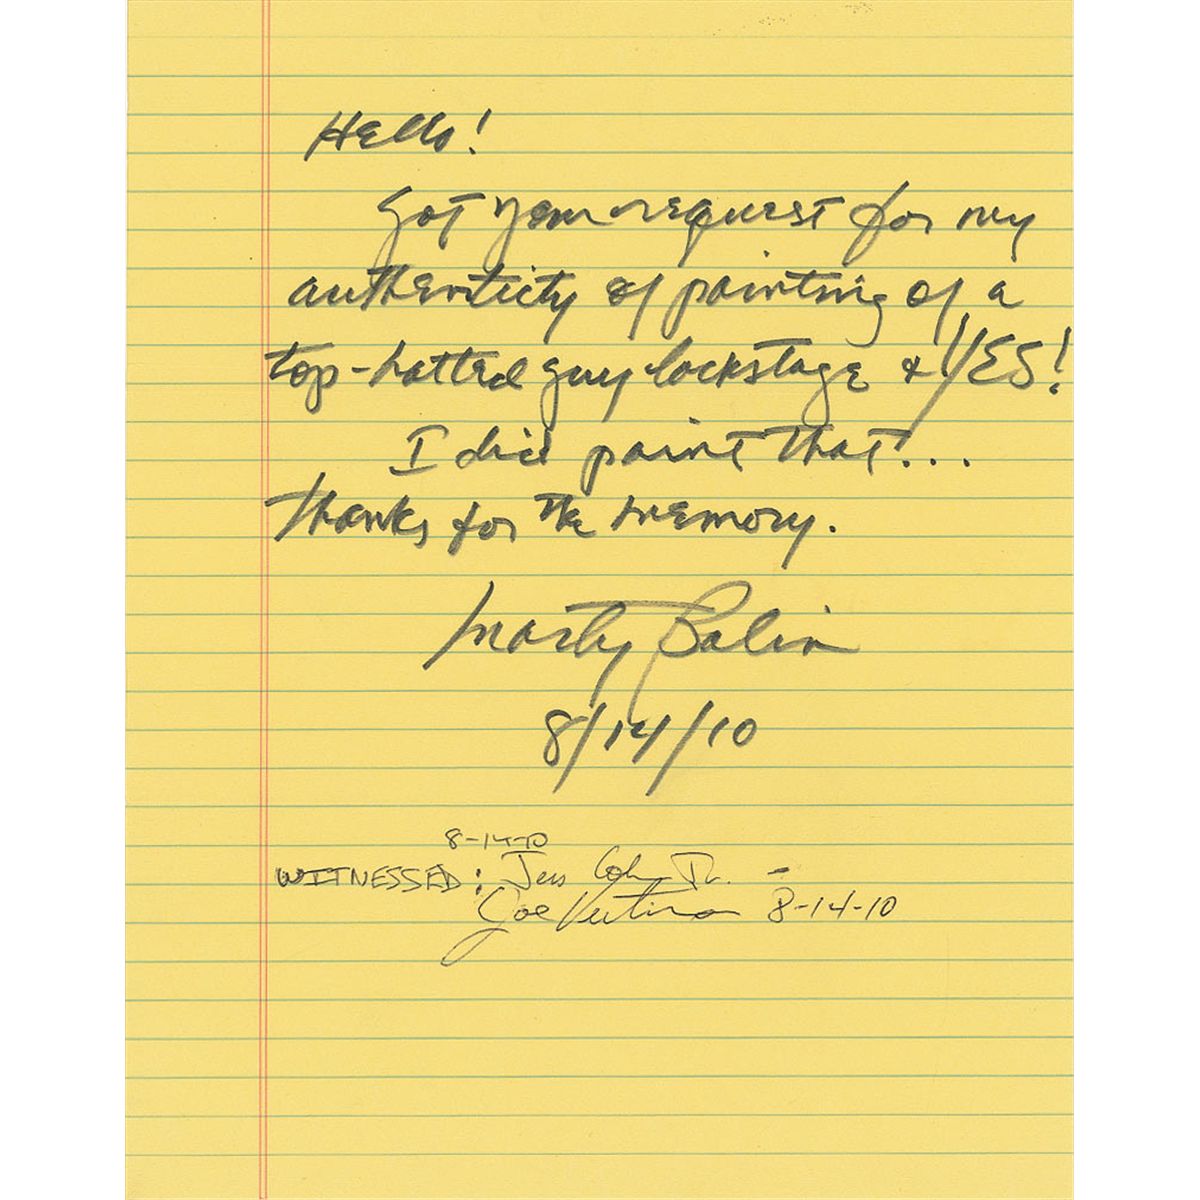 Hello!
Got your request for my
authenticity of painting of a
top-hatted guy backstage & YES!
I did paint that...
thanks for the memory.
Marty Balin
8/14/10
8-14-10
WITNESSED: Jess
Joe 8-14-10